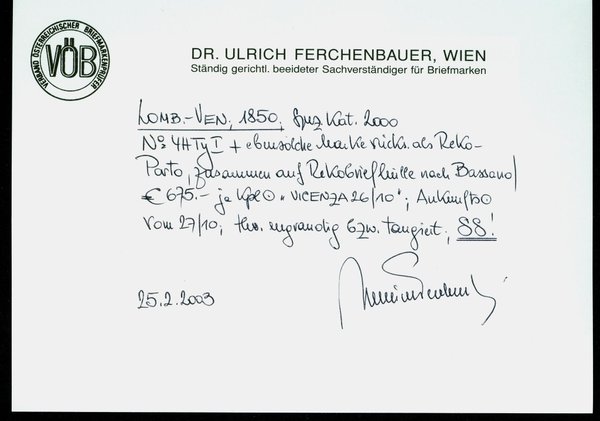 VERBAND ÖSTERREICHISCHER BRIEFMARKENPRÜFER
VÖB
DR. ULRICH FERCHENBAUER, WIEN
Ständig gerichtl. beeideter Sachverständiger für Briefmarken
LOMB.-VEN; 1850; Spez Kat. 2000
No 4HTyI + ebensolche Marke rücks. als Reko-
Porto, zusammen auf Rekobriefhülle nach Bassano/
€ 675.- je Kpl⊙ "VICENZA 26/10"; Ankunfts⊙
vom 27/10; tlw. engrandig bzw. tangiert; SS!
25.2.2003